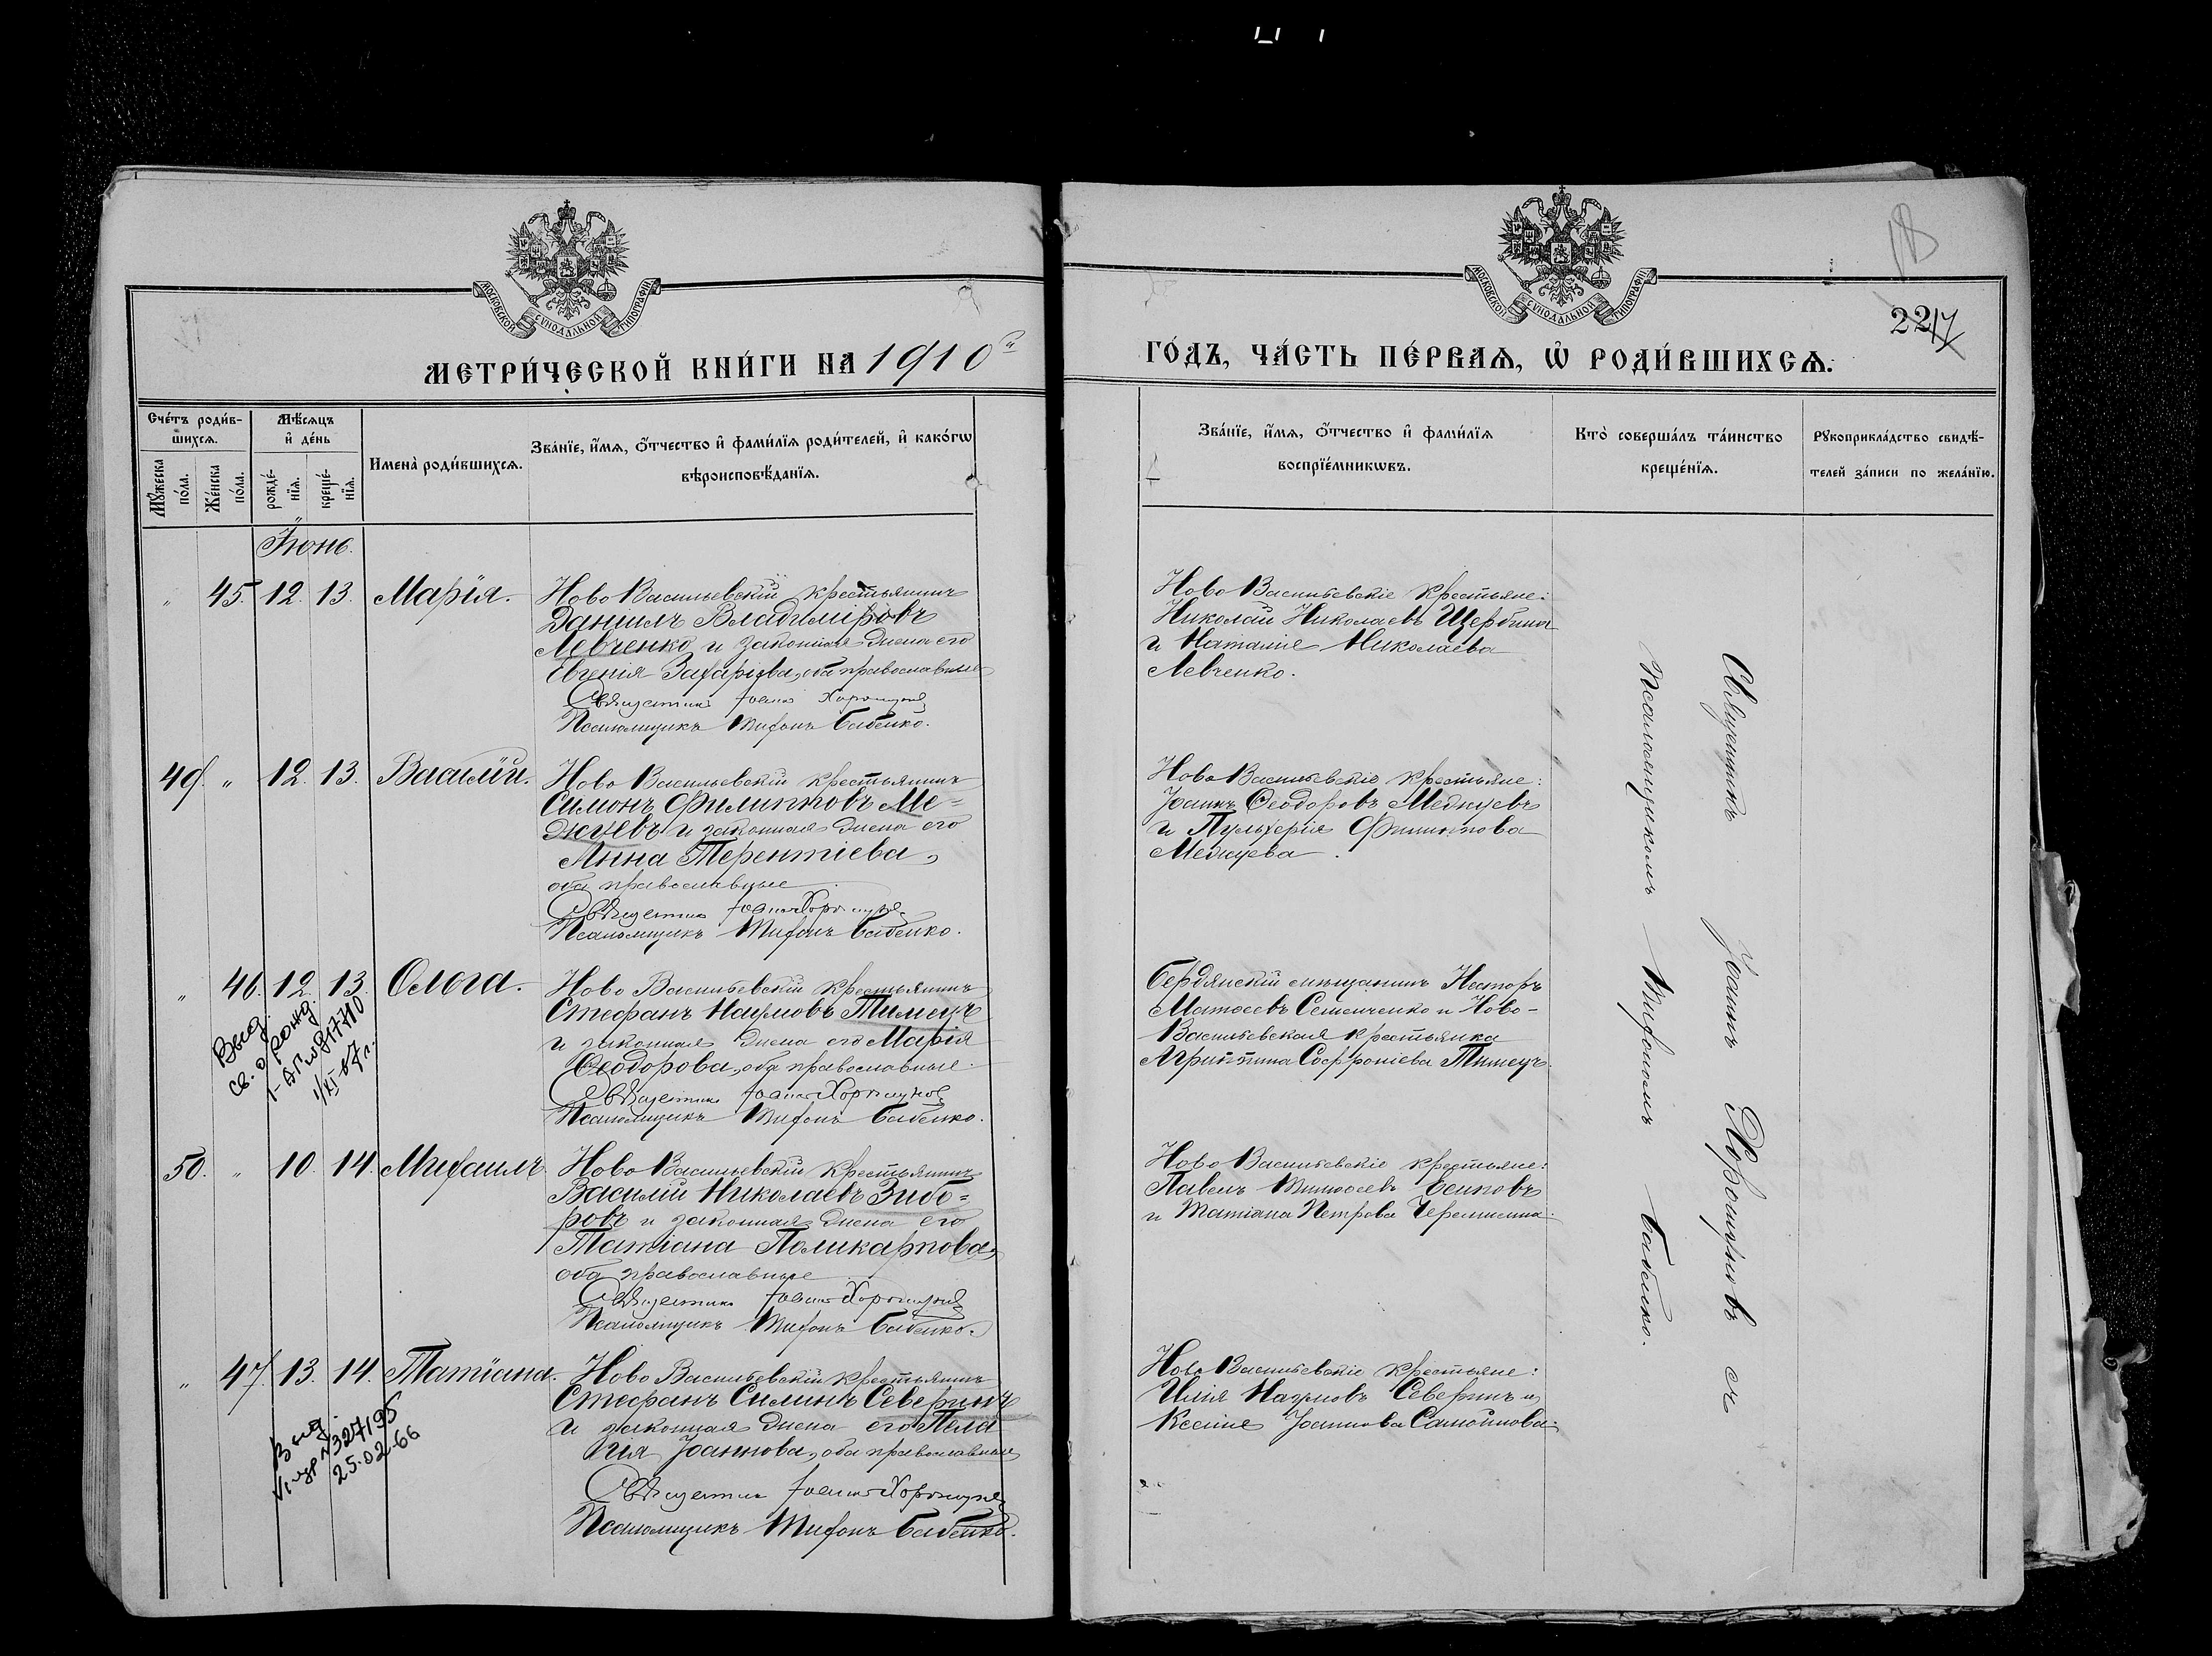 МОСКОВСКОЙ СУНОДАЛЬНОЙ ТИПОГРАФІИ
МЕТРИ́ЧЕСКОЙ КНИ́ГИ НА 1910 й
Сче́тъ роди́в-
шихсѧ.
Мѣ́сѧцъ
и҆ де́нь
Мꙋ́жеска
по́ла.
Же́нска
по́ла.
рожде́-
нїѧ.
креще́-
нїѧ.
Имена̀ роди́вшихсѧ.
Зва́нїе, и҆́мѧ, ѻ҆́тчество и҆ фами́лїѧ роди́телей, и҆ како́гѡ
вѣроисповѣ́данїѧ.
Іюнь.
" 45. 12. 13. Марія.
Ново Васильевскій крестьянинъ
Даніилъ Владиміровъ
Левченко и законная жена его
Евгенія Захаріева, оба православные
Священникъ Іоаннъ Хорошуновъ
Псаломщикъ Тихонъ Бабенко.
49. " 12. 13. Василій.
Ново Васильевскій крестьянинъ
Симонъ Филипповъ Ме=
джуевъ и законная жена его
Анна Терентіева,
оба православные
Священникъ Іоаннъ Хорошуновъ
Псаломщикъ Тихонъ Бабенко.
" 46. 12. 13. Ольга.
Выд.
св. о рожд.
817710
67 г.
Ново Васильевскій крестьянинъ
Стефанъ Наумовъ Тимецъ
и законная жена его Марія
Ѳеодорова, оба православные.
Священникъ Іоаннъ Хорошуновъ
Псаломщикъ Тихонъ Бабенко.
50. " 10. 14. Михаилъ
Ново Васильевскій крестьянинъ
Василій Николаевъ Зибо=
ровъ и законная жена его
Татіана Поликарпова,
оба православные
Священникъ Іоаннъ Хорошуновъ
Псаломщикъ Тихонъ Бабенко.
" 47. 13. 14. Татіана.
Выд.
№327195
25.02.66
Ново Васильевскій крестьянинъ
Стефанъ Силинъ Северинъ
и законная жена его Пела
гія Іоаннова, оба православные
Священникъ Іоаннъ Хорошуновъ
Псаломщикъ Тихонъ Бабенко.
18
МОСКОВСКОЙ СУНОДАЛЬНОЙ ТИПОГРАФІИ
22
17
ГО́ДЪ, ЧА́СТЬ ПЕ́РВАѦ, Ѽ РОДИ́ВШИХСѦ.
Зва́нїе, и҆́мѧ, ѻ҆́тчество и҆ фами́лїѧ
воспрїе́мникѡвъ.
Кто̀ соверша́лъ та́инство
креще́нїѧ.
Рꙋкоприкла́дство свидѣ́-
телей за́писи по жела́нїю.
Ново Васильевскіе крестьяне:
Николай Николаевъ Щербина
и Наталія Николаева
Левченко.
Ново Васильевскіе крестьяне:
Іоаннъ Ѳеодоровъ Меджуевъ
и Пульхерія Филиппова
Меджуева.
Бердянскій мѣщанинъ Несторъ
Матѳеевъ Семенченко и Ново-
Васильевская крестьянка
Агриппина Софроніева Тимецъ.
Ново Васильевскіе крестьяне:
Павелъ Тимоѳеевъ Осиповъ
и Татіана Петрова Черемисина.
Ново Васильевскіе крестьяне:
Илія Наумовъ Северинъ и
Ксенія Іоаннова Самойлова.
Священникъ Іоаннъ Хорошуновъ съ
Псаломщикомъ Тихономъ Бабенко.